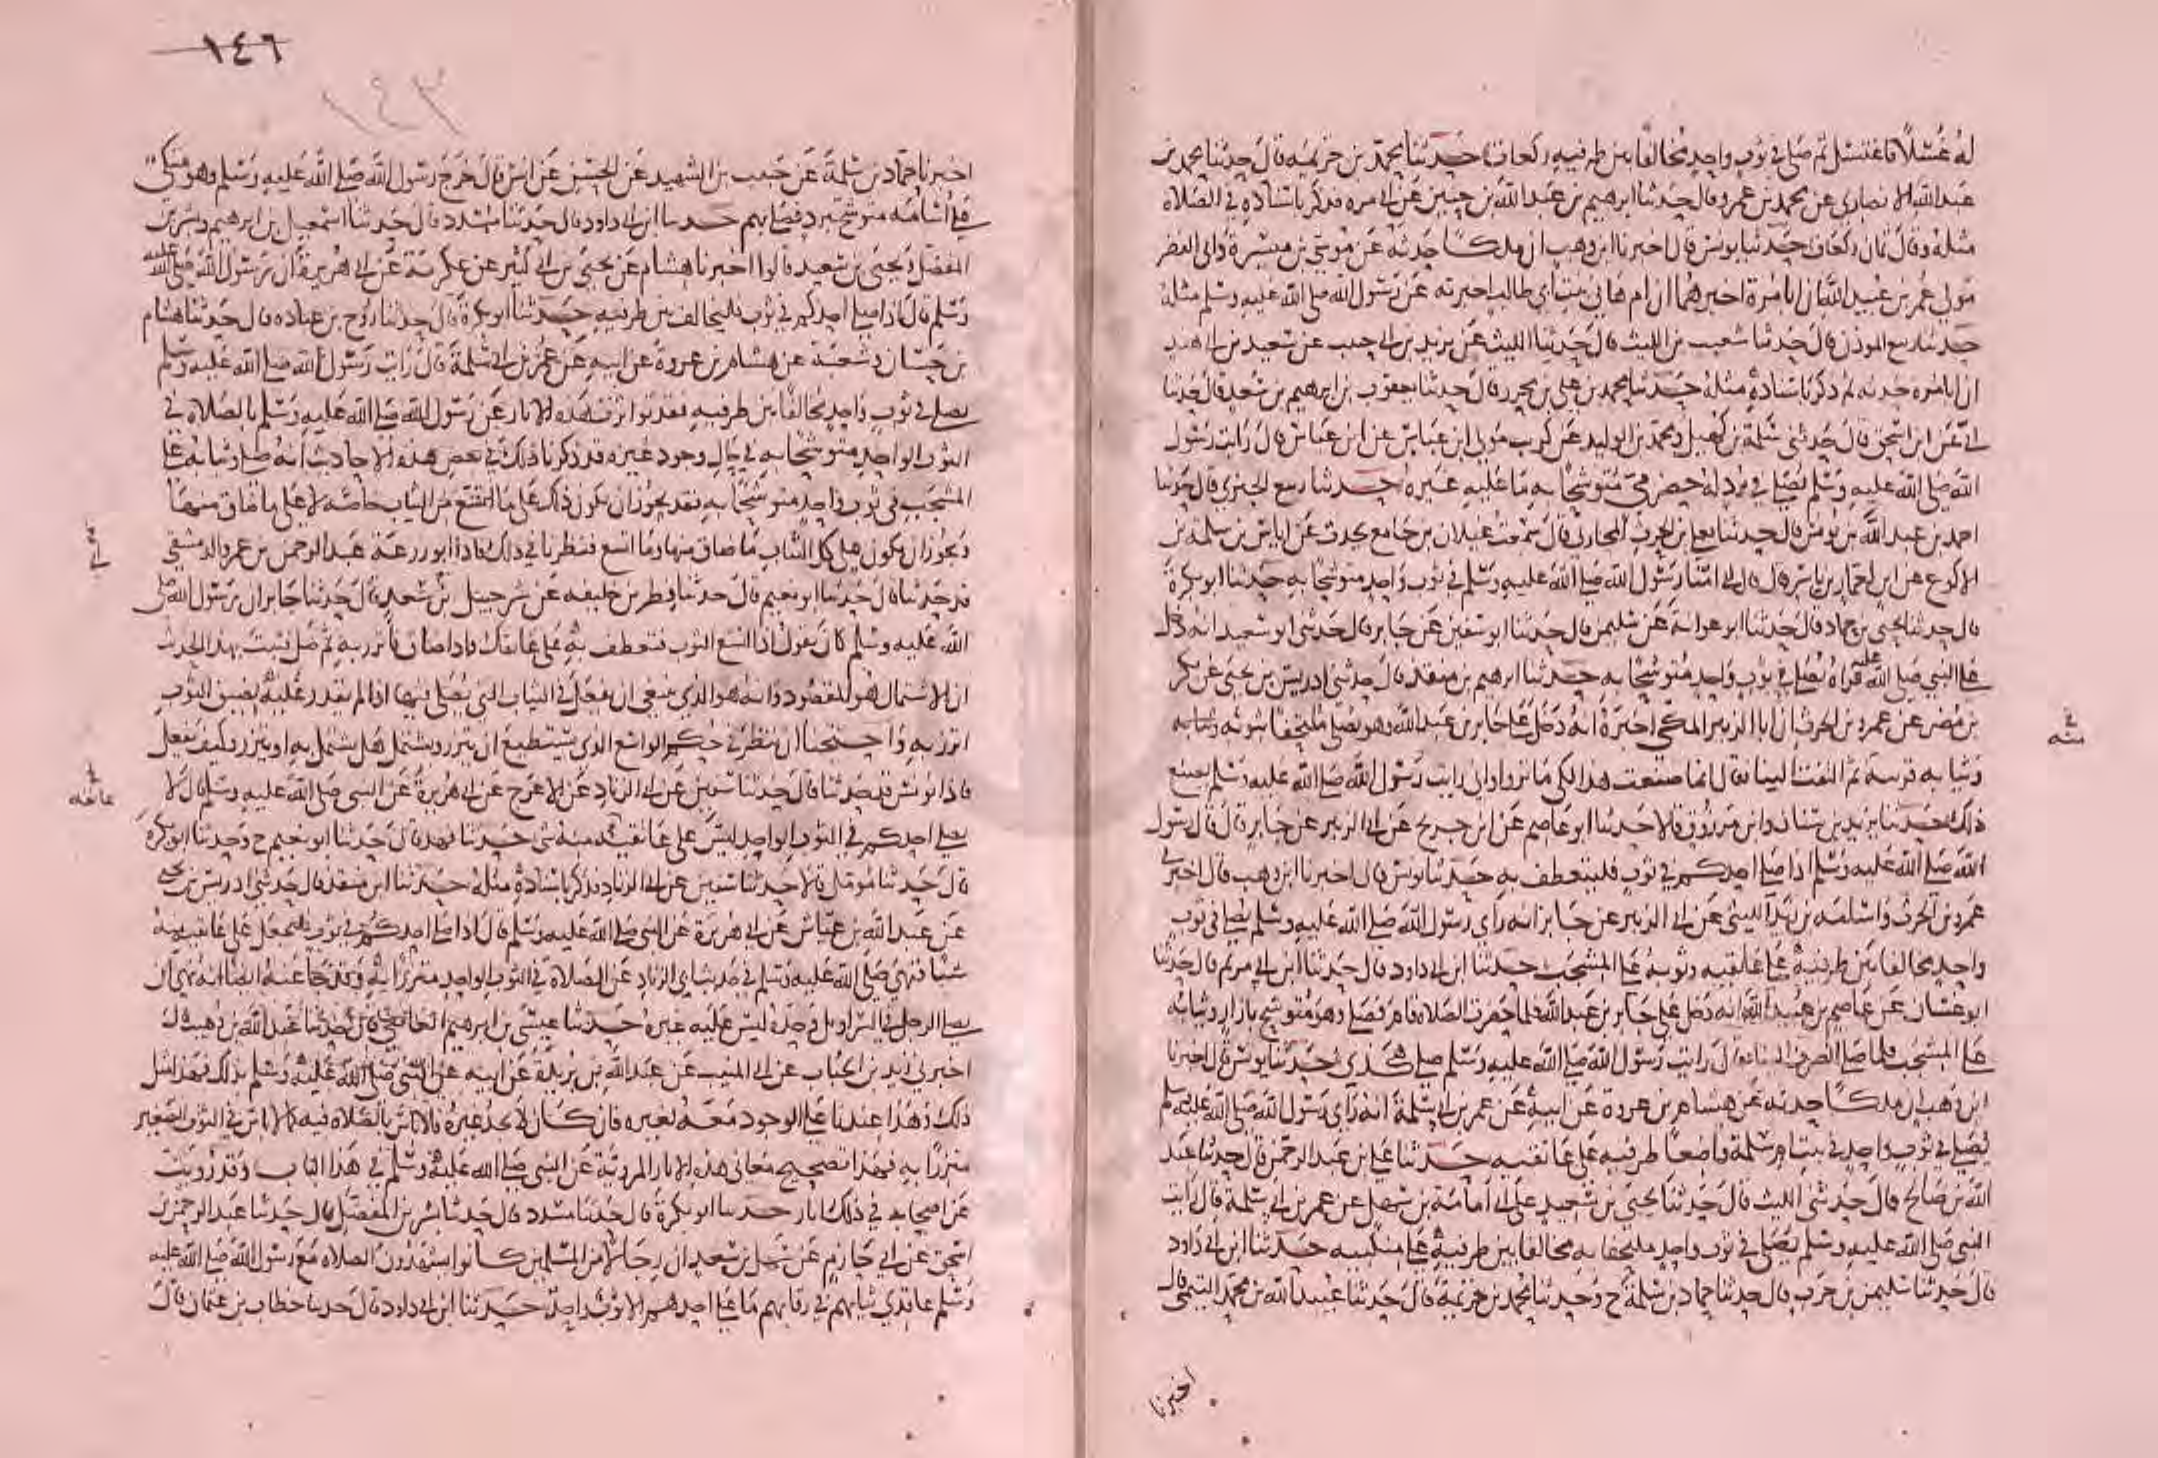 له غسلا فاغتسل ثم صلى في ثوب واحد مخالفا بين طرفيه ركعات حدثنا محمد بن خزيمة قال حدثنا محمد بن
عبد الله الانصاري عن محمد بن عمرو قال حدثنا ابرهيم بن عبد الله بن حنين عن ابي مرة فذكر باسناده في الصلاة
مثله وقال ثمان ركعات حدثنا يونس قال اخبرنا ابن وهب ان ملكا حدثه عن موسى بن ميسرة وابي النضر
مولى عمر بن عبيد الله ان ابا مرة اخبرهما ان ام هاني بنت ابي طالب اخبرته عن رسول الله صلى الله عليه وسلم مثله
حدثنا ربيع الموذن قال حدثنا شعيب بن الليث قال حدثنا الليث عن يزيد بن ابي حبيب عن سعيد بن ابي هند
ان ابا مره حدثه ثم ذكر باسناده مثله حدثنا محمد بن علي بن محرز قال حدثنا يعقوب بن ابرهيم بن سعد قال حدثنا
ابي عن ابن اسحق قال حدثني سلمة بن كهيل ومحمد بن الوليد عن كريب مولى ابن عباس عن ابن عباس قال رايت رسول
الله صلى الله عليه وسلم يصلي في برد له حضرمي متوشحا به ما عليه غيره حدثنا ربيع الجيزي قال حدثنا
احمد بن عبد الله بن يونس قال حدثنا يعلى بن الحرث المحاربي قال سمعت غيلان بن جامع يحدث عن اياس بن سلمة بن
الاكوع عن ابن لعمار بن ياسر قال قال ابي امنا رسول الله صلى الله عليه وسلم في ثوب واحد متوشحا به حدثنا ابو بكرة
قال حدثنا يحيى بن حماد قال حدثنا ابو عوانة عن سليمن قال حدثنا ابو سفين عن جابر قال حدثني ابو سعيد انه دخل
على النبي صلى الله عليه فراه يصلي في ثوب واحد متوشحا به حدثنا ابرهيم بن منقذ قال حدثني ادريس بن يحيى عن بكر
بن مضر عن عمرو بن الحرث ان ابا الزبير المكي اخبره انه دخل على جابر بن عبد الله وهو يصلي ملتحفا بثوبه وثيابه
وثيابه قريبة ثم التفت الينا فقال انما صنعت هذا لكي ما تروا واني رايت رسول الله صلى الله عليه وسلم يصنع
ذلك حدثنا يزيد بن سنان وابن مرزوق قالا حدثنا ابو عاصم عن ابن جريج عن ابي الزبير عن جابر قال قال رسول
الله صلى الله عليه وسلم اذا صلى احدكم في ثوب فليتعطف به حدثنا يونس قال اخبرنا ابن وهب قال اخبرني
عمرو بن الحرث واسامة بن زيد الليثي عن ابي الزبير عن جابر انه راى رسول الله صلى الله عليه وسلم يصلي في ثوب
واحد مخالفا بين طرفيه على عاتقيه وثوبه على المشجب حدثنا ابن ابي داود قال حدثنا ابن ابي مريم قال حدثنا
ابو غسان عن عاصم بن عبيد الله انه دخل على جابر بن عبد الله فلما حضرت الصلاة قام فصلى وهو متوشح بازار وثيابه
على المشجب فلما صلى انصرف الينا فقال رايت رسول الله صلى الله عليه وسلم صلى هكذى حدثنا يونس قال اخبرنا
ابن وهب ان ملكا حدثه عن هشام بن عروة عن ابيه عن عمر بن ابي سلمة انه راى رسول الله صلى الله عليه وسلم
يصلي في ثوب واحد في بيت ام سلمة واضعا طرفيه على عاتقيه حدثنا علي بن عبد الرحمن قال حدثنا عبد
الله بن صالح قال حدثني الليث قال حدثنا يحيى بن سعيد عن ابي امامة بن سهل عن عمر بن ابي سلمة قال رايت
النبي صلى الله عليه وسلم يصلي في ثوب واحد ملتحفا به مخالفا بين طرفيه على منكبيه حدثنا ابن ابي داود
قال حدثنا سليمن بن حرب قال حدثنا حماد بن سلمة ح وحدثنا محمد بن خزيمة قال حدثنا عبيد الله بن محمد التيمي قال
في
منه
اخبرنا
١٤٦
١٤٣
اخبرنا حماد بن سلمة عن حبيب بن الشهيد عن الحسن عن انس قال خرج رسول الله صلى الله عليه وسلم وهو متكئ
على اسامة متوشح ببرد فصلى بهم حدثنا ابن ابي داود قال حدثنا مسدد قال حدثنا اسمعيل بن ابرهيم وبشر بن
المفضل ويحيى بن سعيد قالوا اخبرنا هشام عن يحيى بن ابي كثير عن عكرمة عن ابي هريرة ان رسول الله صلى الله عليه
وسلم قال اذا صلى احدكم في ثوب فليخالف بين طرفيه حدثنا ابو بكرة قال حدثنا روح بن عباده قال حدثنا هشام
بن حسان وشعبة عن هشام بن عروة عن ابيه عن عمر بن ابي سلمة قال رايت رسول الله صلى الله عليه وسلم
يصلي في ثوب واحد مخالفا بين طرفيه فقد تواترت هذه الاثار عن رسول الله صلى الله عليه وسلم بالصلاة في
الثوب الواحد متوشحا به في حال وجود غيره قد ذكرنا ذلك في بعض هذه الاحاديث انه صلى وثيابه على
المشجب في ثوب واحد متوشحا به فقد يجوز ان يكون ذلك على ما اتسع من الثياب خاصة لا على ما ضاق منها
ويجوز ان يكون على كل الثياب ما ضاق منها وما اتسع فنظرنا في ذلك فاذا ابو زرعة عبد الرحمن بن عمرو الدمشقي
قد حدثنا قال حدثنا ابو نعيم قال حدثنا فطر بن خليفة عن شرحبيل بن سعد قال حدثنا جابر ان رسول الله صلى
الله عليه وسلم كان يقول اذا اتسع الثوب فتعطف به على عاتقك واذا ضاق فاتزر به ثم صل فثبت بهذا الحديث
ان الاشتمال هو المقصود وانه هو الذي ينبغي ان يفعل في الثياب التي يصلى فيها اذا لم يقدر عليه لضيق الثوب
اتزر به واحتجنا ان ننظر في حكم الواسع الذي يستطيع ان يتزر ويشتمل هل يشتمل به او يتزر وكيف يفعل
فاذا يونس قد حدثنا قال حدثنا سفين عن ابي الزناد عن الاعرج عن ابي هريرة عن النبي صلى الله عليه وسلم قال لا
يصلي احدكم في الثوب الواحد ليس على عاتقيه منه شي حدثنا فهد قال حدثنا ابو نعيم ح وحدثنا ابو بكرة
قال حدثنا مومل قالا حدثنا سفين عن ابي الزناد فذكر باسناده مثله حدثنا ابن منقذ قال حدثني ادريس بن يحيى
عن عبد الله بن عياش عن ابي هريرة عن النبي صلى الله عليه وسلم قال اذا صلى احدكم في ثوب فليجعل على عاتقيه منه
شيا فنهى صلى الله عليه وسلم في حديث ابي الزناد عن الصلاة في الثوب الواحد متزرا به وقد جا عنه ايضا انه نهى ان
يصلي الرجل في السراويل وحده ليس عليه غيره حدثنا عيسى بن ابرهيم الغافقي قال حدثنا عبد الله بن وهب قال
اخبرني زيد بن الحباب عن ابي المنيب عن عبد الله بن بريدة عن ابيه عن النبي صلى الله عليه وسلم بذلك فهذا مثل
ذلك وهذا عندنا على الوجود معه لغيره فان كان لا يجد غيره فلا باس بالصلاه فيه كما لا باس في الثوب الصغير
متزرا به فهذا تصحيح معاني هذه الاثار المروية عن النبي صلى الله عليه وسلم في هذا الباب وقد رويت
عن اصحابه في ذلك اثار حدثنا ابو بكرة قال حدثنا مسدد قال حدثنا بشر بن المفضل قال حدثنا عبد الرحمن بن
اسحق عن ابي حازم عن سهل بن سعد ان رجالا من المسلمين كانوا يشهدون الصلاه مع رسول الله صلى الله عليه
وسلم عاقدي ثيابهم في رقابهم ما على احدهم الا ثوب واحد حدثنا ابن ابي داود قال حدثنا خطاب بن عثمان قال
في
عاتقه